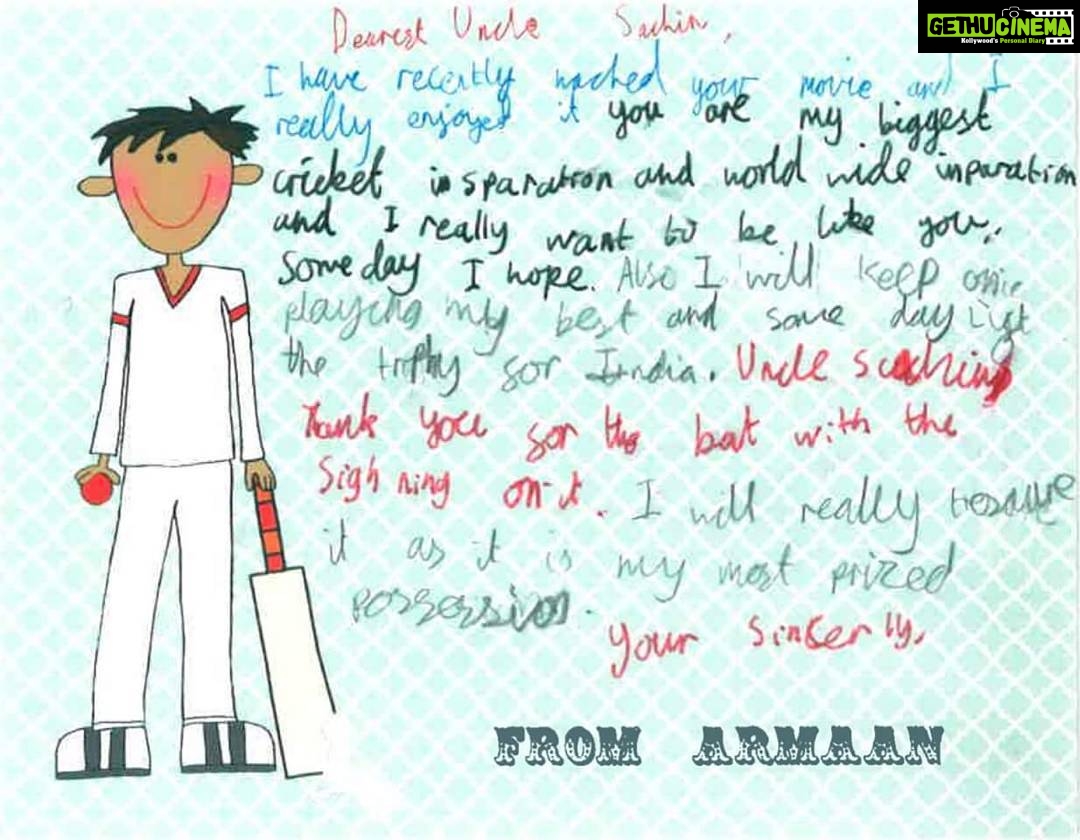 GETHUCINEMA
Kollywood's Personal Diary
Dearest Uncle Sachin,
I have recently wached your movie and I
really enjoyed it you are my biggest
cricket insparation and world wide inparation
and I really want to be like you.
Some day I hope. Also I will keep
playing my best and some day List
the trophy sor India. Uncle Saching
Thank you sor the bat with the
Sighning on it. I will really tresaure
it as it is my most prized
possession.
Your Sinserly,
FROM ARMAAN